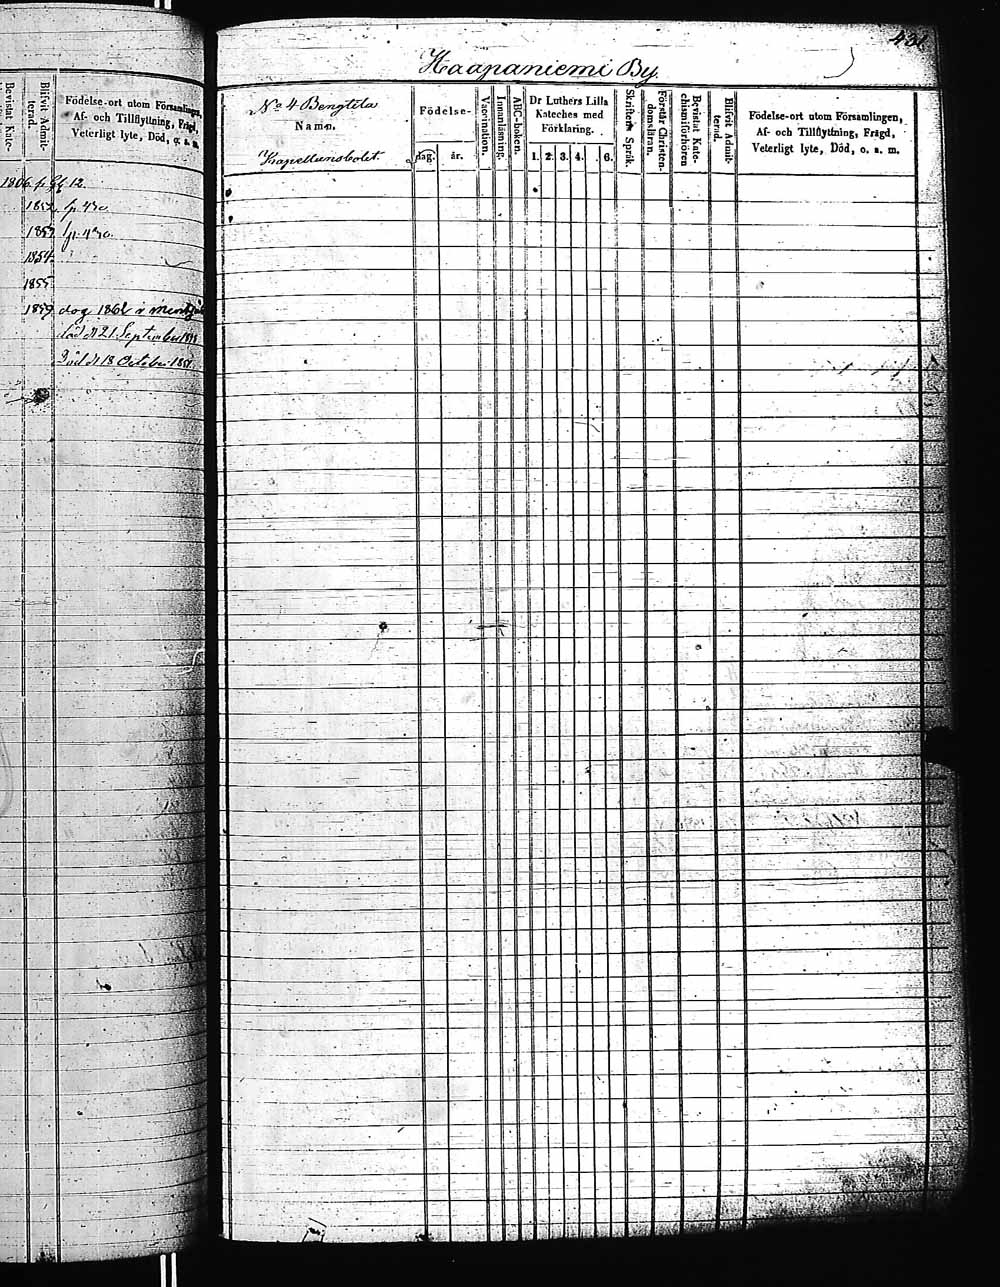 Bevistat Kate-
Blifvit Admit-
terad.
Födelse-ort utom Församlingen,
Af- och Tillflyttning, Frägd,
Veterligt lyte, Död, o. a. m.
1806. p. 12.
1852. p. 430
1853. p. 430.
1854.
1855.
1859. dog 1862
död d 21 September
död d 18 October 1857.
Haapaniemi By.
No 4 Bengtila
Namn.
Kapellansbolet.
Födelse-
dag.
år.
Vaccination.
Innanläsning.
ABC-boken.
Dr Luthers Lilla
Kateches med
Förklaring.
1. 2. 3. 4. . 6.
Skriftens Språk.
Förstår Christen-
domsläran.
Bevistat Kate-
chismiförhören
Blifvit Admit-
terad.
Födelse-ort utom Församlingen,
Af- och Tillflyttning, Frägd,
Veterligt lyte, Död, o. s. m.